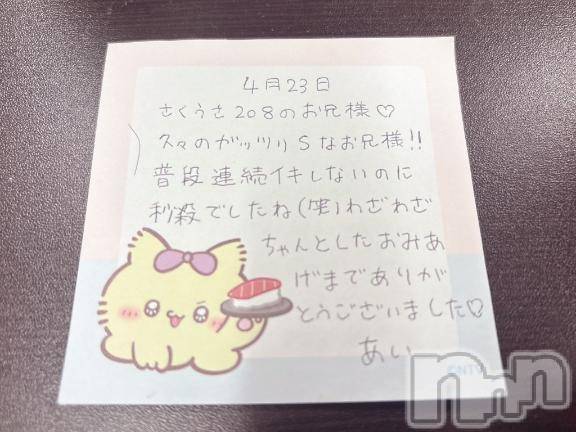 4月23日
さくうさ208のお兄様♡
久々のガッツリSなお兄様!!
普段連続イキしないのに
秒殺でしたね(笑)わざわざ
ちゃんとしたおみあ
げまでありが
とうございました♡
あい
©NTV
nnn